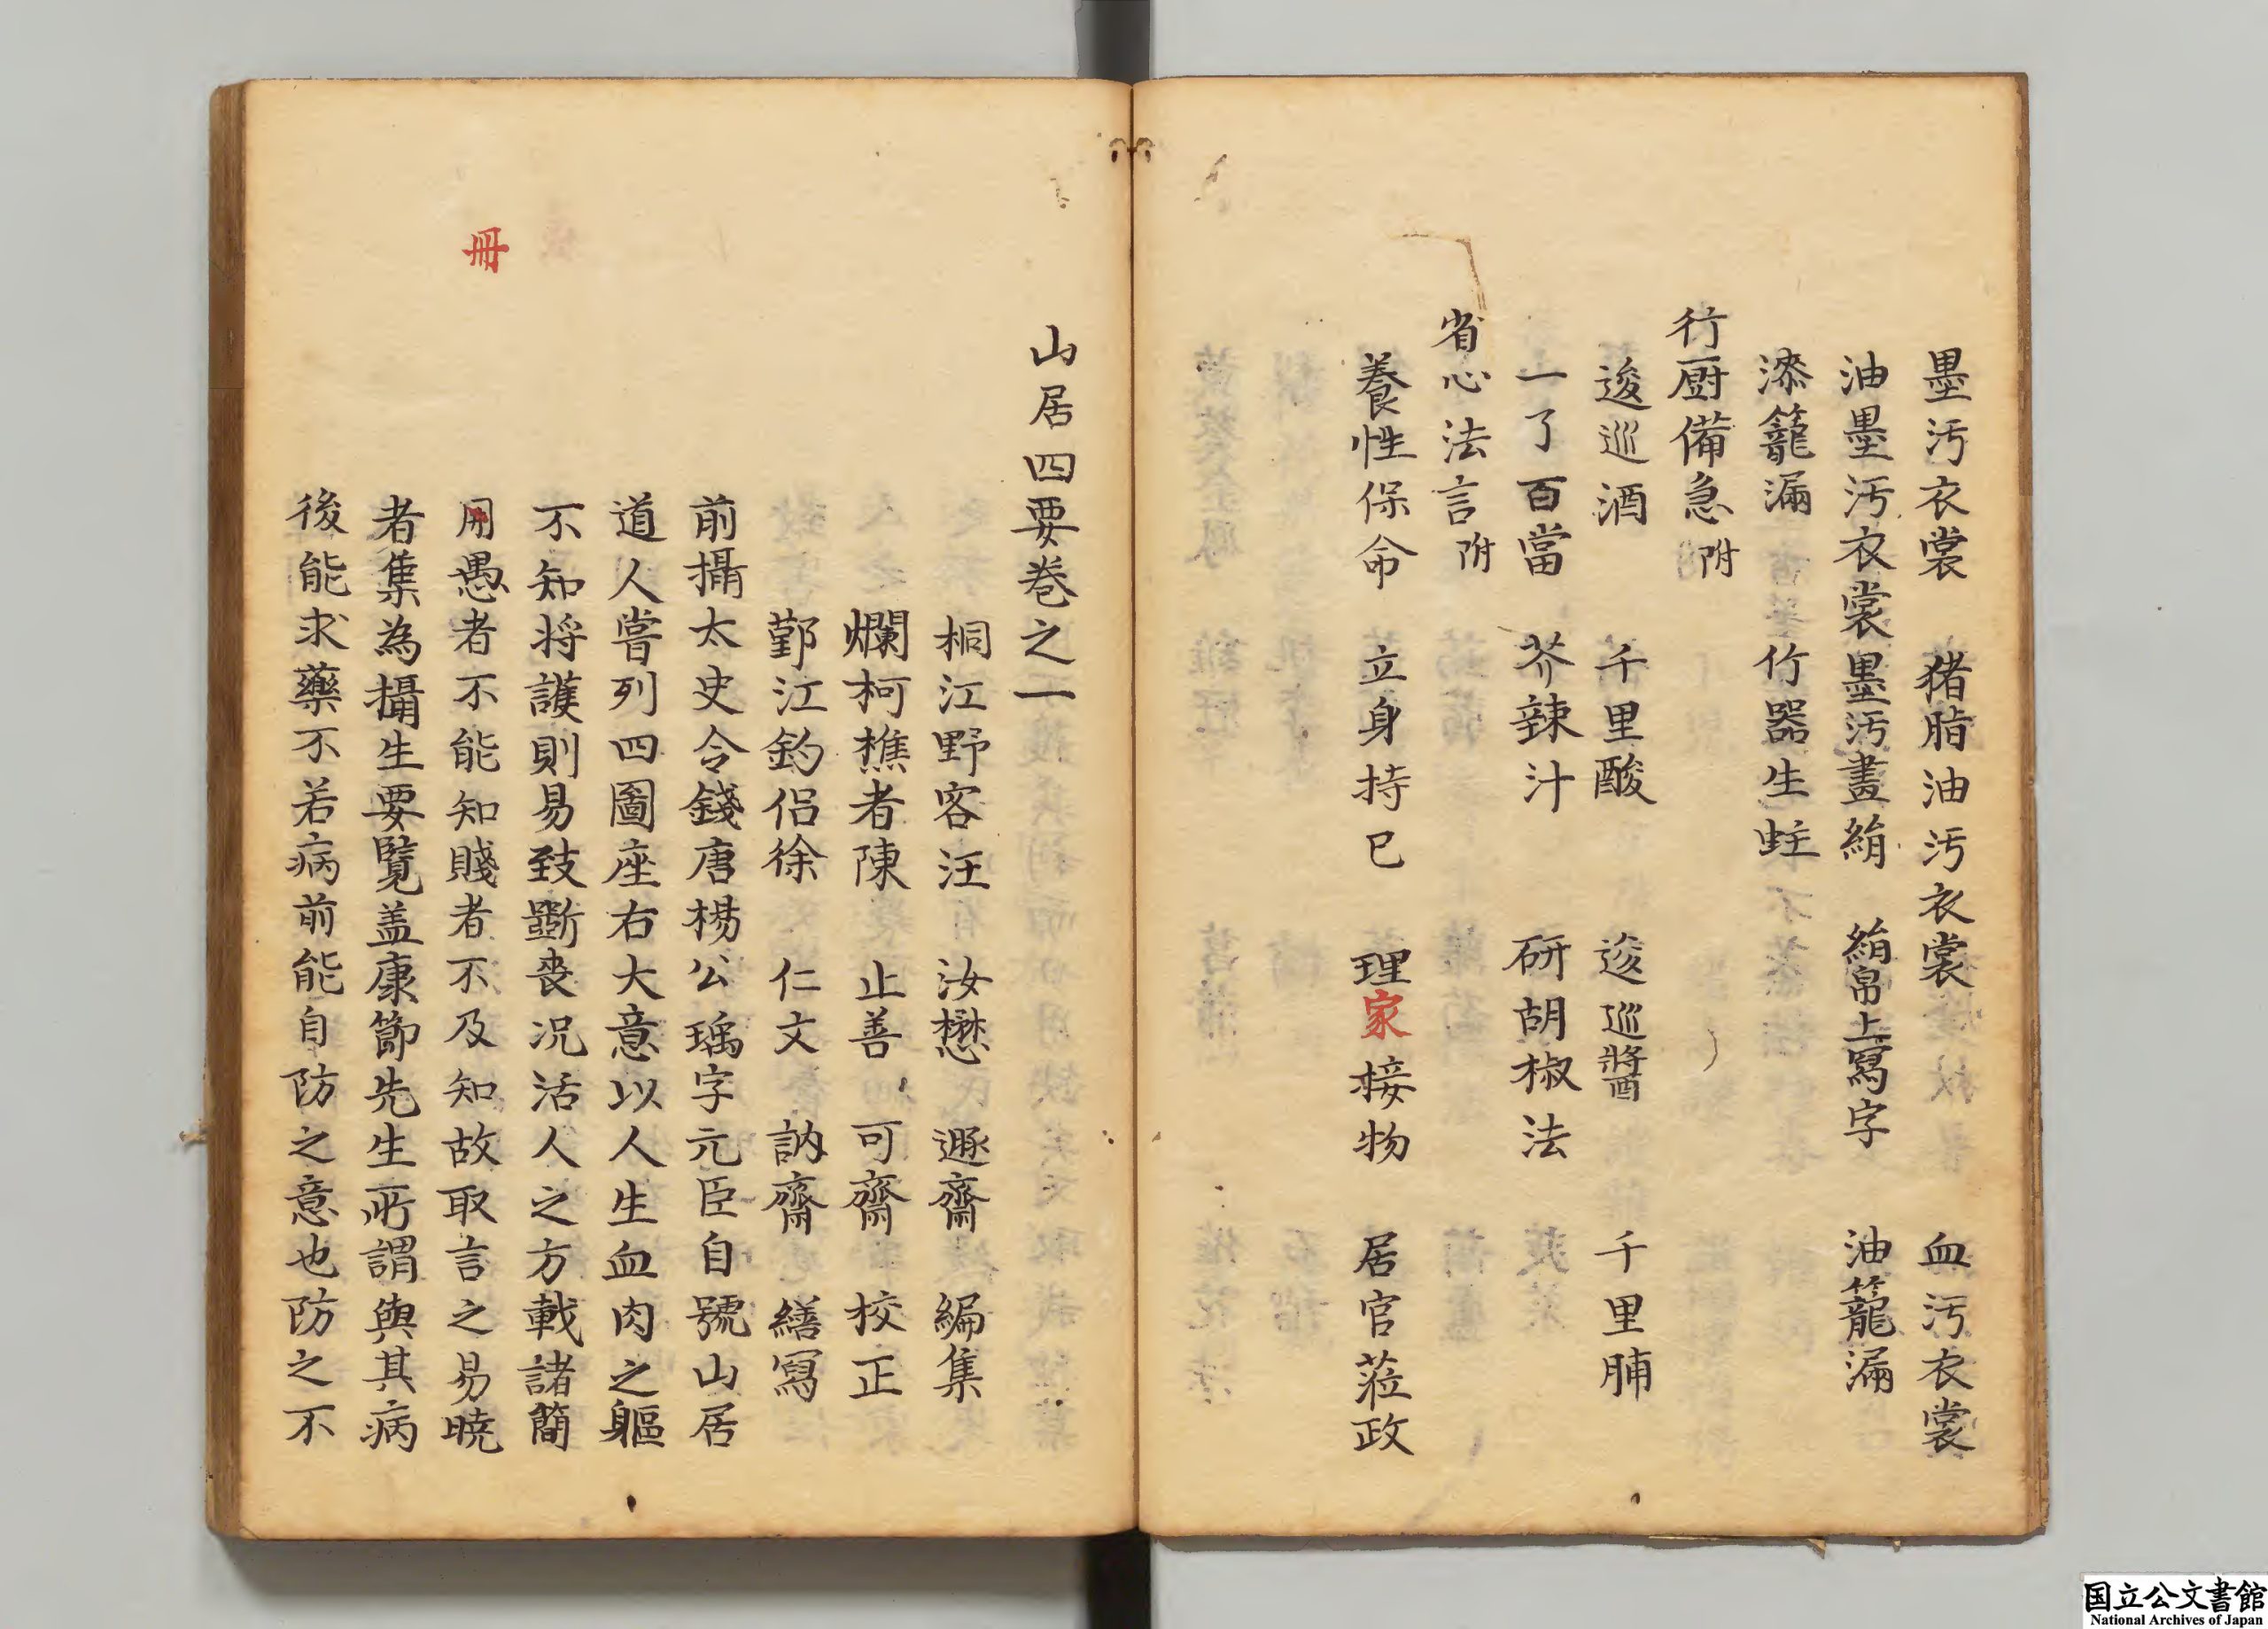 墨汚衣裳　猪脂油汚衣裳　血汚衣裳
油墨汚衣裳　墨汚畫絹　絹帛上寫字　油籠漏
漆籠漏　竹器生蛀
行厨備急附
逡巡酒　千里酸　逡巡醬　千里脯
一了百當　芥辣汁　研胡椒法
省心法言附
養性保命　立身持已　理家接物　居官莅政
山居四要巻之一
桐江野客汪　汝懋　遯齋　編集
爛柯樵者陳　止善　可齋　校正
鄞江釣侶徐　仁文　訥齋　繕寫
前攝太史令錢唐楊公瑀字元臣自號山居
道人嘗列四圖座右大意以人生血肉之軀
不知将護則易致斵喪况活人之方載諸簡
冊
用愚者不能知賤者不及知故取言之易暁
者集為攝生要覧盖康節先生所謂與其病
後能求藥不若病前能自防之意也防之不
国立公文書館
National Archives of Japan